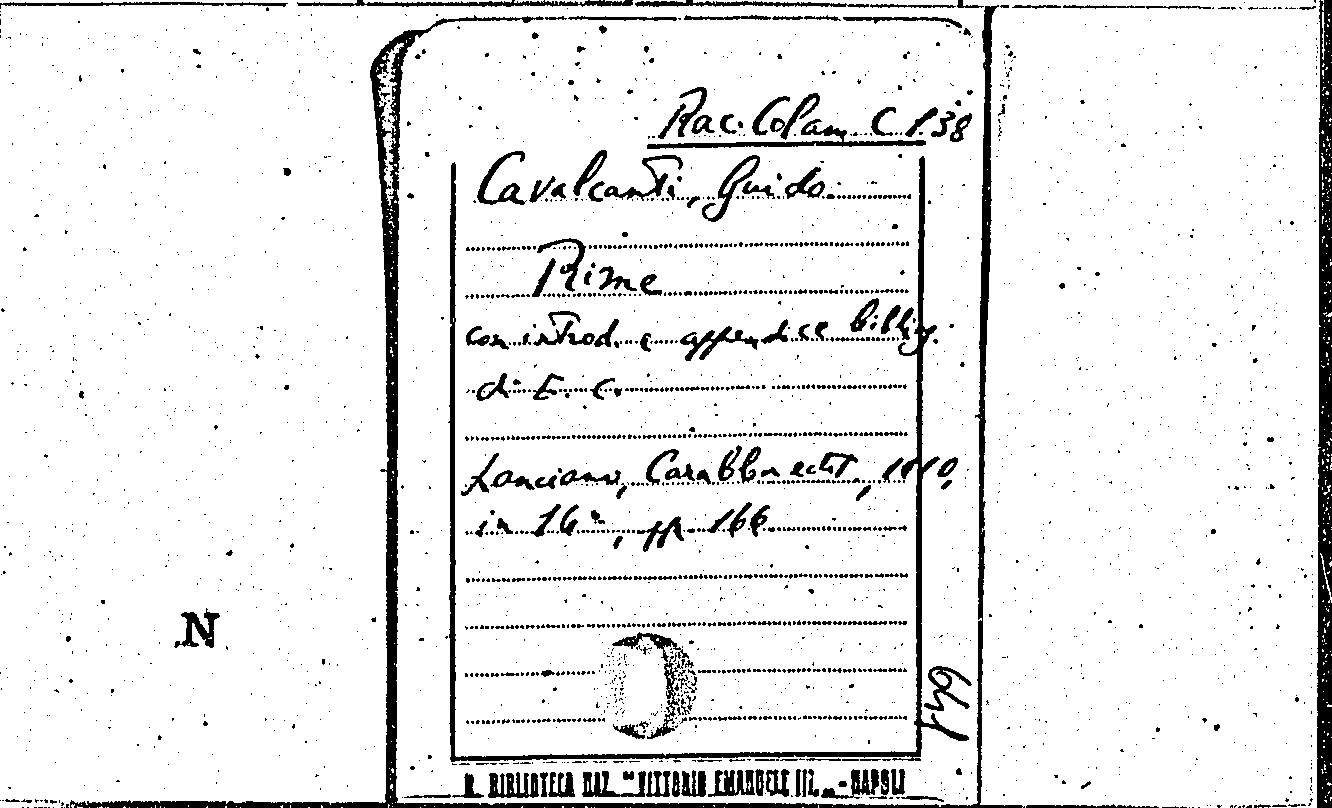 Rac. Colam. C 138
Cavalcanti, Guido.
Rime
con introd. e appendice bibliog.
di E. C.
Lanciano, Carabba edit., 1910,
in 16°, pp. 166
N
R. BIBLIOTECA NAZ. "VITTORIO EMANUELE III„ - NAPOLI